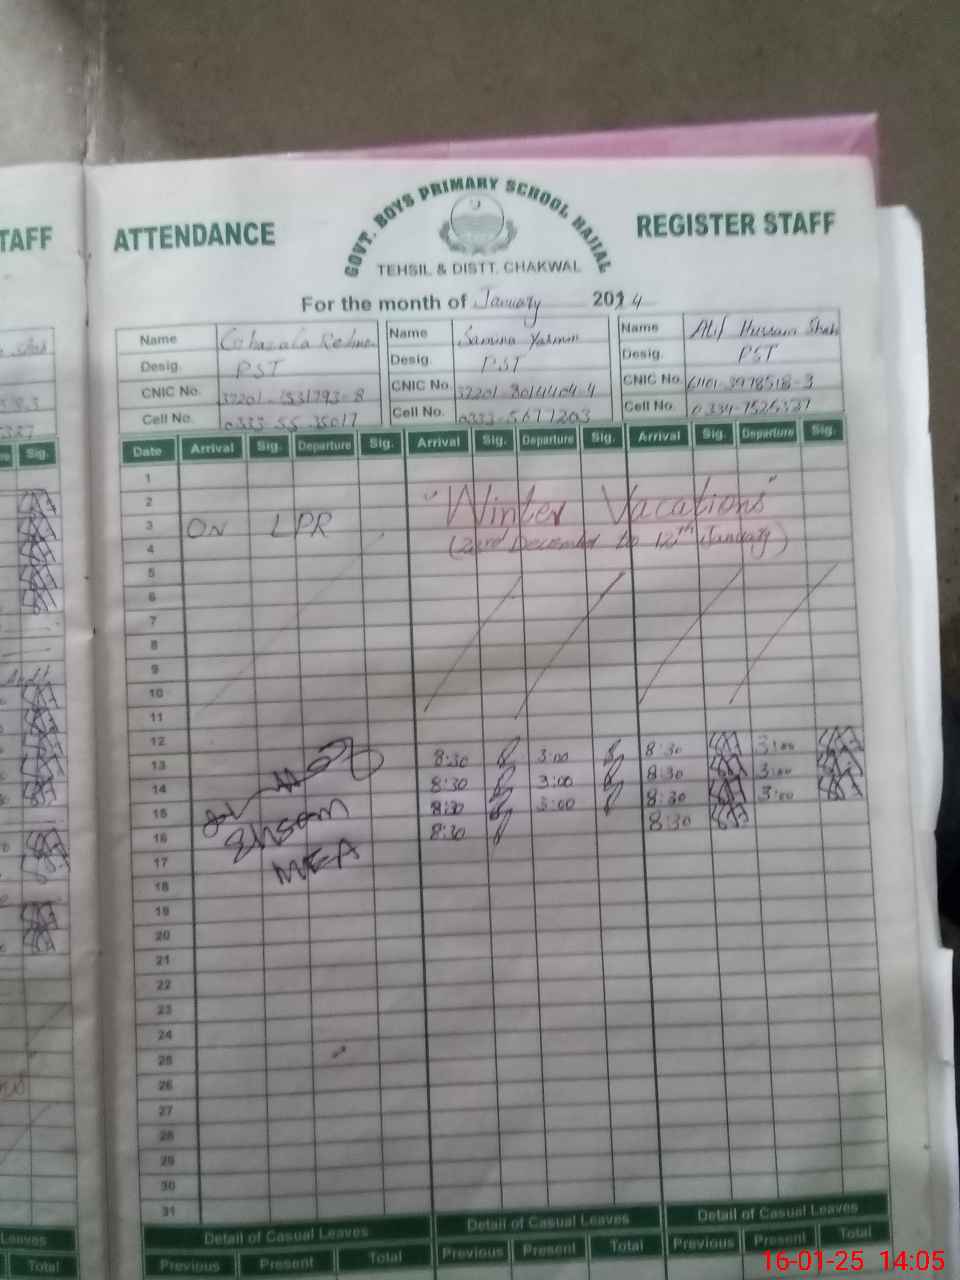 TAFF
ATTENDANCE
GOVT. BOYS PRIMARY SCHOOL HAJIAL
REGISTER STAFF
TEHSIL & DISTT. CHAKWAL
For the month of January 2024
Name Name Samina Yasmin Name Atif Hussain Shah
Desig. PST Desig. PST Desig. PST
CNIC No. CNIC No. CNIC No. 61101-3978518-3
Cell No. 0333-55 35017 Cell No. 0333-5671203 Cell No. 0334-7525327
Sig.
Date Arrival Sig. Departure Sig. Arrival Sig. Departure Sig. Arrival Sig. Departure Sig.
1
2 "Winter Vacations"
3 ON LPR
4 (23rd December to 12th January)
5
6
7
8
9
10
11
12
13 8:30 3:00 8:30 3:00
14 8:30 3:00 8:30 3:00
15 8:30 3:00 8:30 3:00
16 8:30 8:30
Ehsan
MEA
17
18
19
20
21
22
23
24
25
26
27
28
29
30
31
Leaves
Detail of Casual Leaves Detail of Casual Leaves Detail of Casual Leaves
Total
Previous Present Total Previous Present Total Previous Present Total
16-01-25 14:05